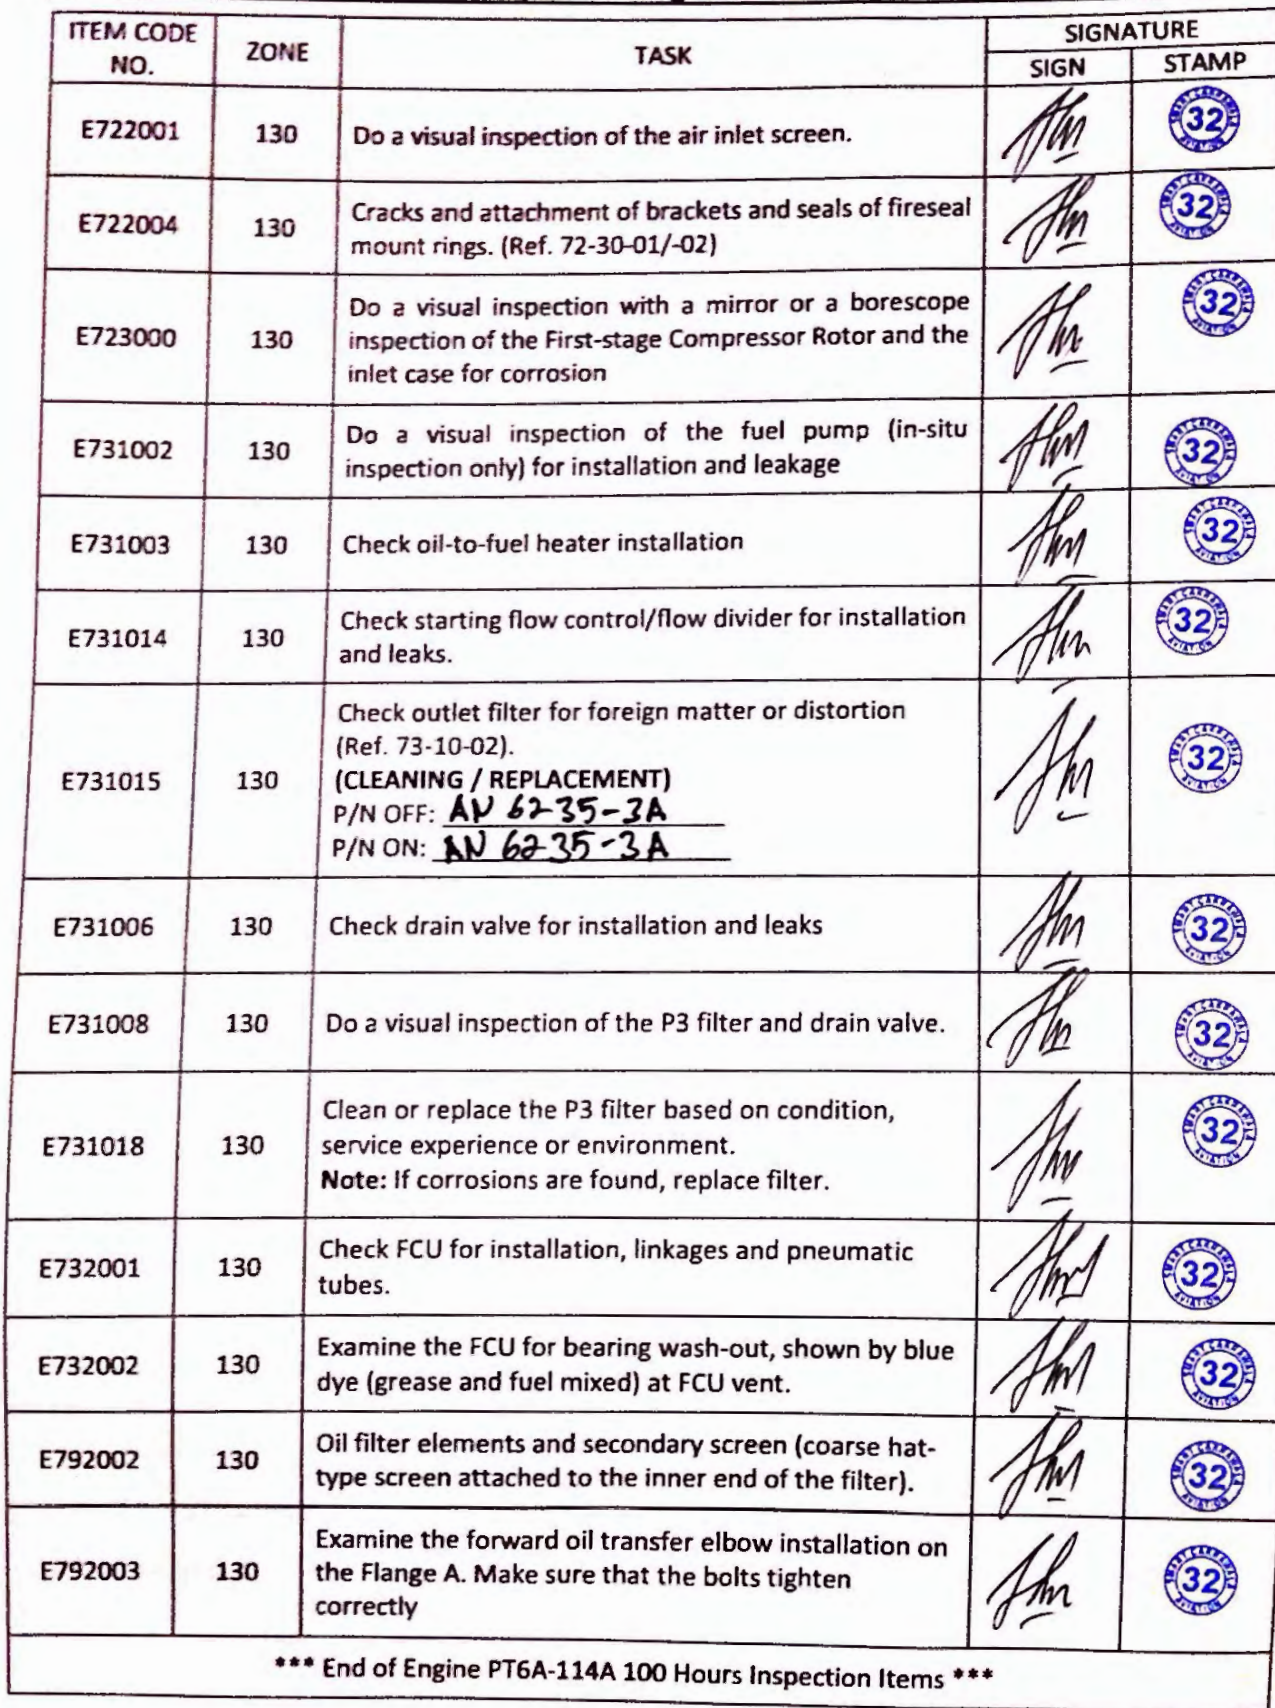 ITEM CODE NO. ZONE TASK SIGNATURE
SIGN STAMP
E722001 130 Do a visual inspection of the air inlet screen. 32
E722004 130 Cracks and attachment of brackets and seals of fireseal
mount rings. (Ref. 72-30-01/-02) 32
E723000 130 Do a visual inspection with a mirror or a borescope
inspection of the First-stage Compressor Rotor and the
inlet case for corrosion 32
E731002 130 Do a visual inspection of the fuel pump (in-situ
inspection only) for installation and leakage 32
E731003 130 Check oil-to-fuel heater installation 32
E731014 130 Check starting flow control/flow divider for installation
and leaks. 32
E731015 130 Check outlet filter for foreign matter or distortion
(Ref. 73-10-02).
(CLEANING / REPLACEMENT)
P/N OFF: AN 6235-3A
P/N ON: AN 6235-3A 32
E731006 130 Check drain valve for installation and leaks 32
E731008 130 Do a visual inspection of the P3 filter and drain valve. 32
E731018 130 Clean or replace the P3 filter based on condition,
service experience or environment.
Note: If corrosions are found, replace filter. 32
E732001 130 Check FCU for installation, linkages and pneumatic
tubes. 32
E732002 130 Examine the FCU for bearing wash-out, shown by blue
dye (grease and fuel mixed) at FCU vent. 32
E792002 130 Oil filter elements and secondary screen (coarse hat-
type screen attached to the inner end of the filter). 32
E792003 130 Examine the forward oil transfer elbow installation on
the Flange A. Make sure that the bolts tighten
correctly 32
*** End of Engine PT6A-114A 100 Hours Inspection Items ***